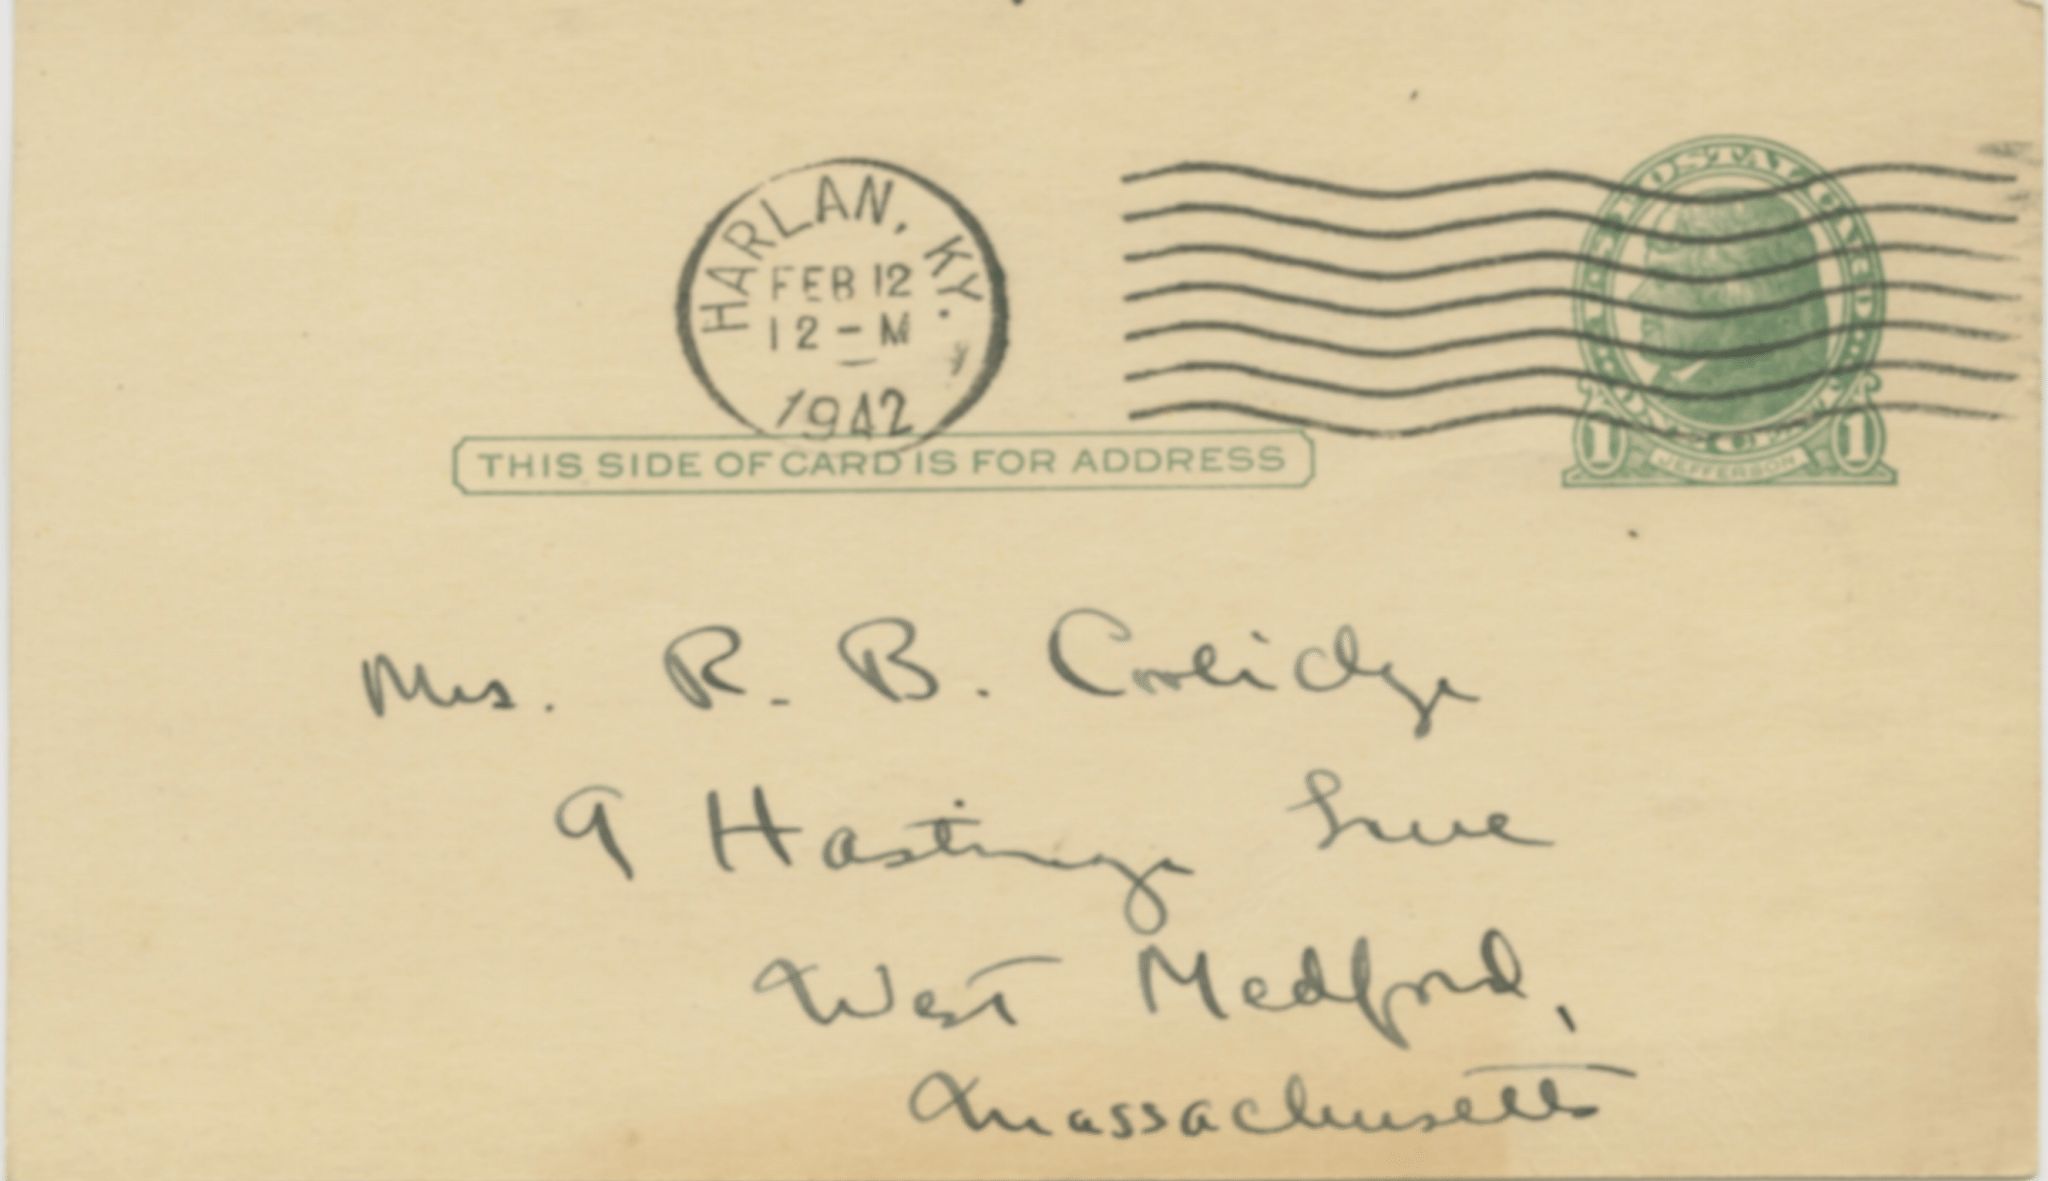 HARLAN, KY.
FEB 12
12-M
1942
UNITED STATES POSTAGE
1 JEFFERSON 1
THIS SIDE OF CARD IS FOR ADDRESS
Mrs. R. B. Coolidge
9 Hastings Lane
West Medford,
Massachusetts